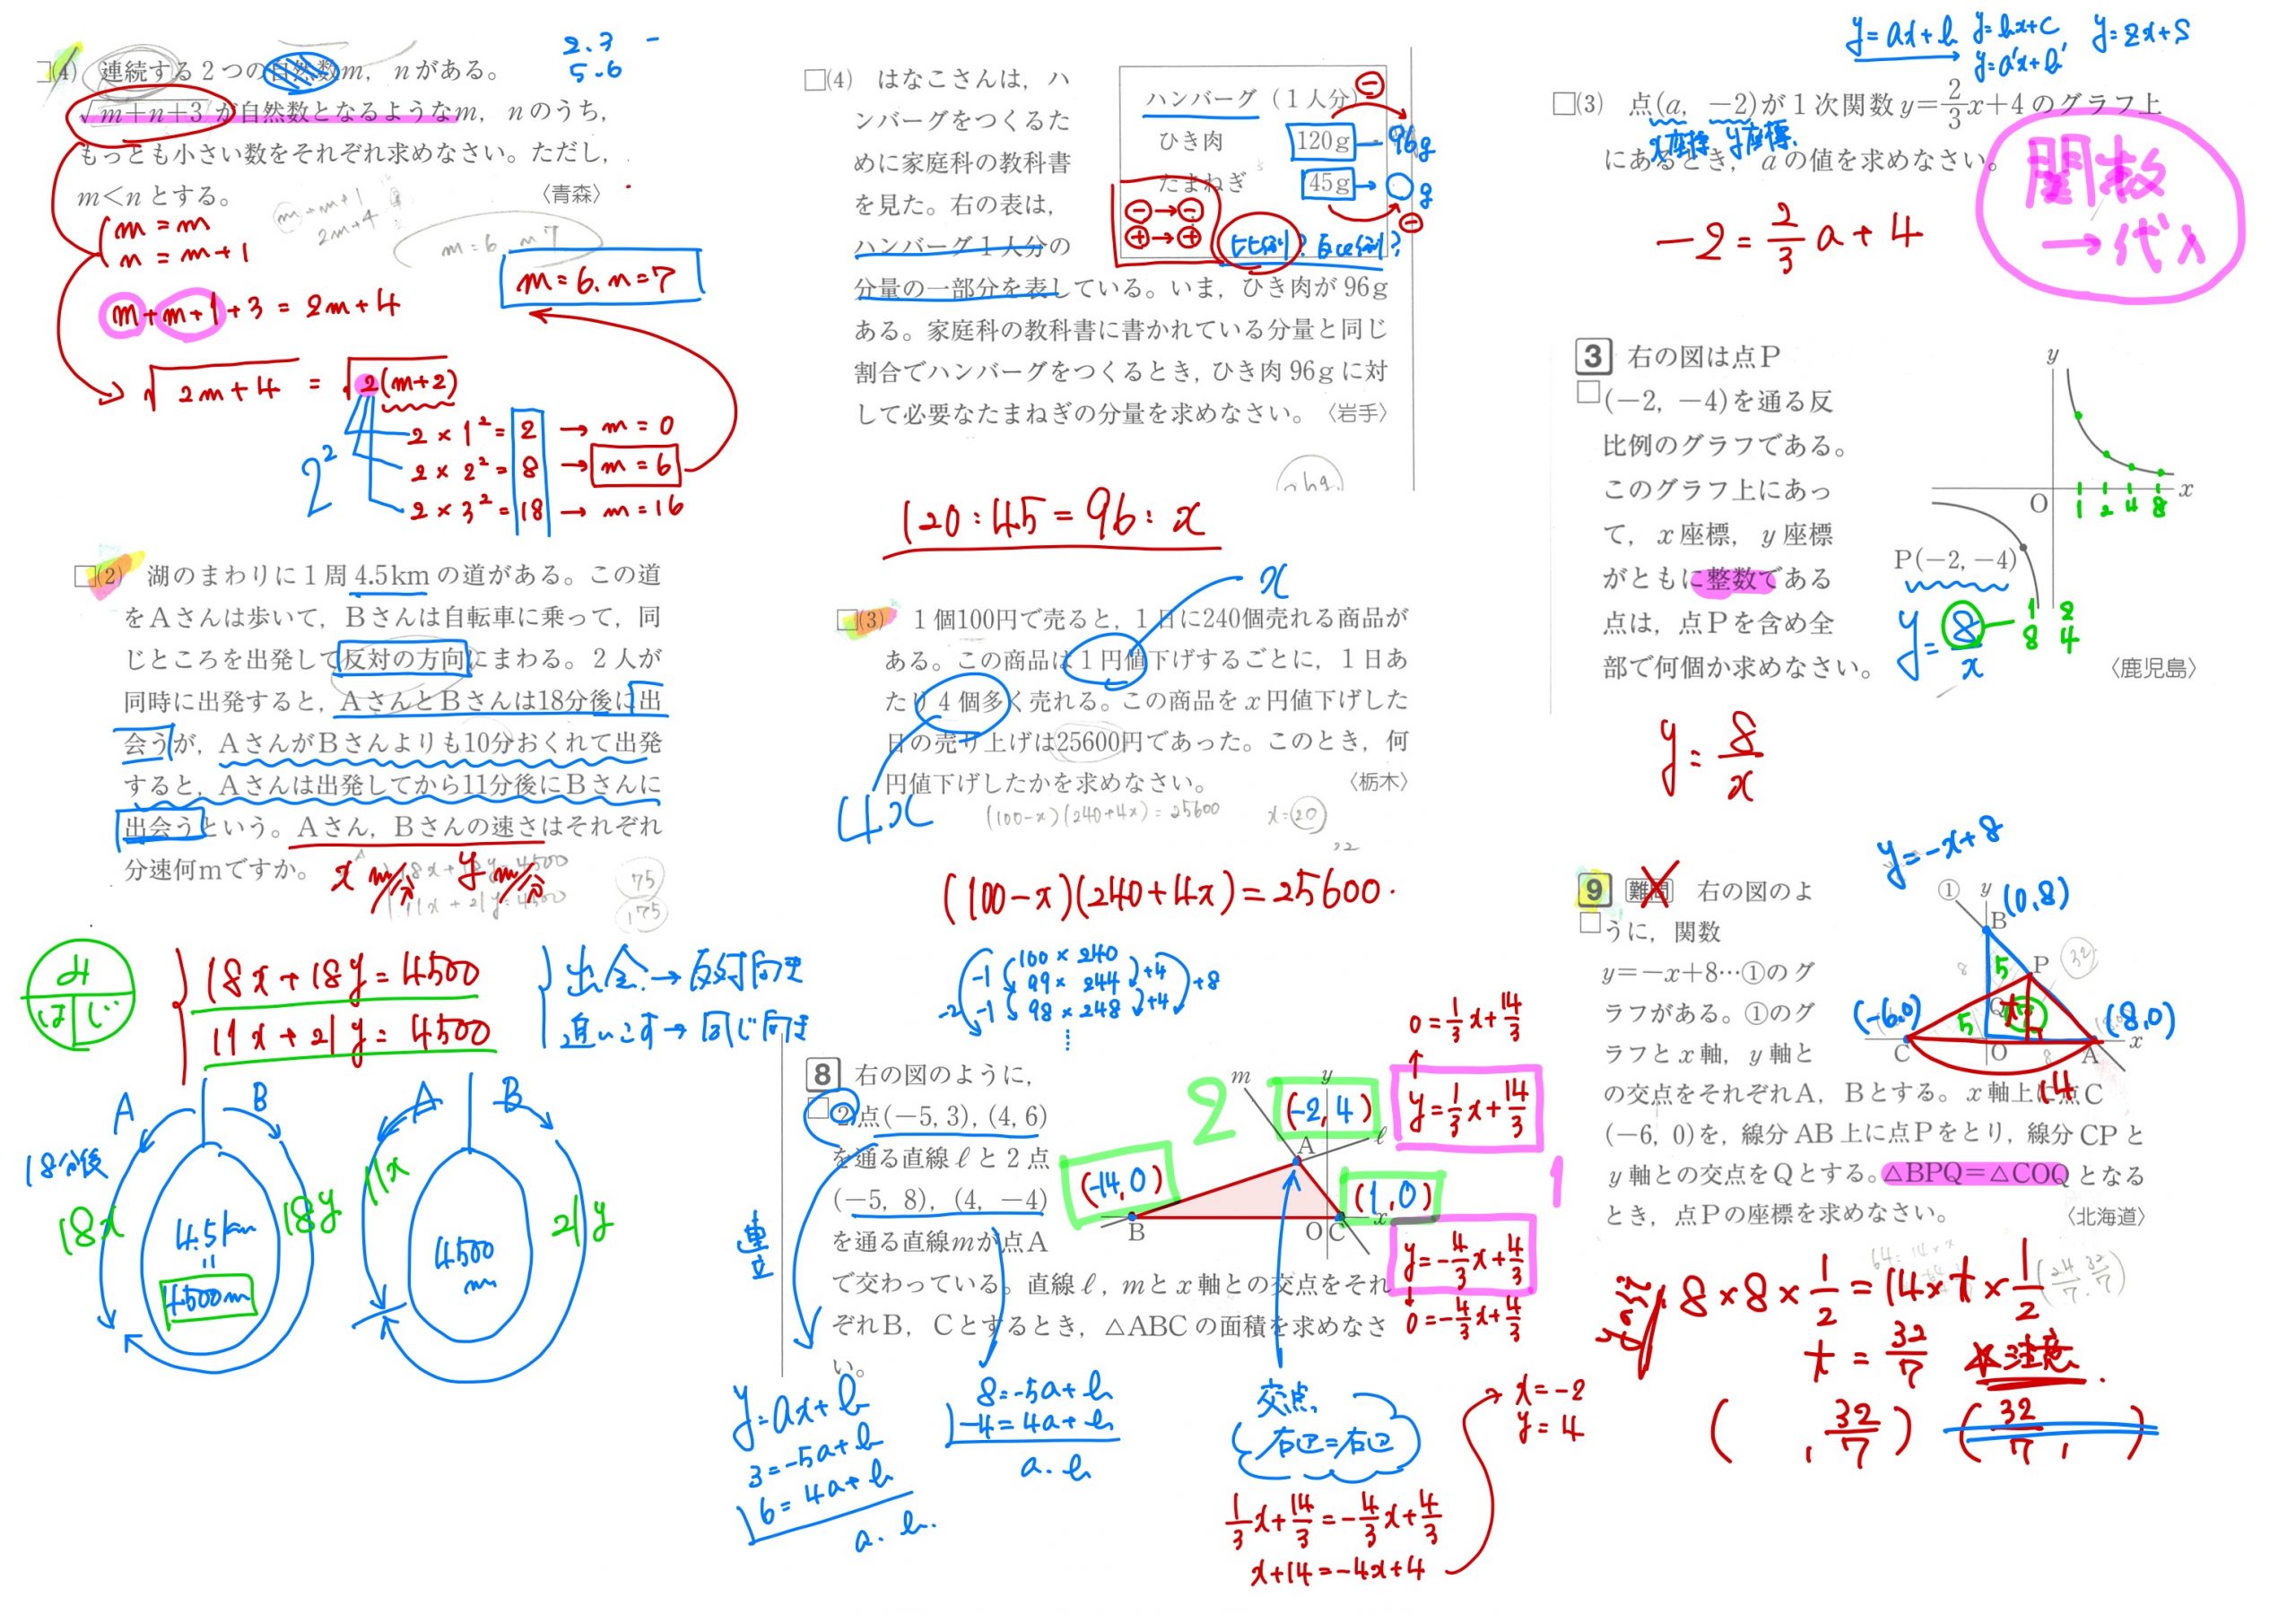 □(4) 連続する2つの自然数m, nがある。
√m+n+3 が自然数となるようなm, nのうち,
もっとも小さい数をそれぞれ求めなさい。ただし,
m<nとする。 〈青森〉
2.3
5.6
m+m+1
2m+4
m=6 n7
m=m
n=m+1
m=6. n=7
m+m+1+3=2m+4
√2m+4 = √2(m+2)
2²
2×1²=2 → m=0
2×2²=8 → m=6
2×3²=18 → m=16
□(2) 湖のまわりに1周4.5kmの道がある。この道
をAさんは歩いて, Bさんは自転車に乗って, 同
じところを出発して反対の方向にまわる。2人が
同時に出発すると, AさんとBさんは18分後に出
会うが, AさんがBさんよりも10分おくれて出発
すると, Aさんは出発してから11分後にBさんに
出会うという。Aさん, Bさんの速さはそれぞれ
分速何mですか。
x m/分 y m/分
11x+21y=4500
75
175
み
は じ
18x+18y=4500
11x+21y=4500
出会→反対向き
追いこす→同じ向き
A B
18分後
18x
18y
4.5km
=
4500m
A B
11x
21y
4500
m
□(4) はなこさんは, ハ
ンバーグをつくるた
めに家庭科の教科書
を見た。右の表は,
ハンバーグ1人分の
分量の一部分を表している。いま, ひき肉が96g
ある。家庭科の教科書に書かれている分量と同じ
割合でハンバーグをつくるとき, ひき肉96gに対
して必要なたまねぎの分量を求めなさい。〈岩手〉
ハンバーグ (1人分)
ひき肉 120g → 96g
たまねぎ 45g → ○g
⊖
⊖
⊖→⊖
⊕→⊕
比例? 反比例?
120:45=96:x
□(3) 1個100円で売ると, 1日に240個売れる商品が
ある。この商品は1円値下げするごとに, 1日あ
たり4個多く売れる。この商品をx円値下げした
日の売り上げは25600円であった。このとき, 何
円値下げしたかを求めなさい。 〈栃木〉
x
4x
(100-x)(240+4x)=25600 x=20
(100-x)(240+4x)=25600.
100×240
99×244
98×248
⋮
-1
-1
-2
+4
+4
+8
8 右の図のように,
□ 2点(-5, 3), (4, 6)
を通る直線ℓと2点
(-5, 8), (4, -4)
を通る直線mが点A
で交わっている。直線ℓ, mとx軸との交点をそれ
ぞれB, Cとするとき, △ABCの面積を求めなさ
い。
連立
2
m y
(-2,4)
A ℓ
(-14,0)
(1,0)
B O C x
1
0=1/3x+14/3
↑
y=1/3x+14/3
y=-4/3x+4/3
↓
0=-4/3x+4/3
y=ax+b
3=-5a+b
6=4a+b
a. b.
8=-5a+b
-4=4a+b
a. b
交点
右辺=右辺
1/3x+14/3=-4/3x+4/3
x+14=-4x+4
x=-2
y=4
y=ax+b y=bx+c y=2x+5
y=a'x+b'
□(3) 点(a, -2)が1次関数y=2/3x+4のグラフ上
にあるとき, aの値を求めなさい。
x座標 y座標.
-2=2/3a+4
関数
→代入
3 右の図は点P
□ (-2, -4)を通る反
比例のグラフである。
このグラフ上にあっ
て, x座標, y座標
がともに整数である
点は, 点Pを含め全
部で何個か求めなさい。 〈鹿児島〉
y
O x
1 2 4 8
P(-2, -4)
y=8/x
1 2
8 4
y=8/x
9 難問 右の図のよ
□ うに, 関数
y=-x+8…①のグ
ラフがある。①のグ
ラフとx軸, y軸と
の交点をそれぞれA, Bとする。x軸上に点C
(-6, 0)を, 線分AB上に点Pをとり, 線分CPと
y軸との交点をQとする。△BPQ=△COQとなる
とき, 点Pの座標を求めなさい。 〈北海道〉
y=-x+8
① y
B (0,8)
P
32
5
5
Q t
8
(-6,0) (8,0)
C O 8 A x
14
8×8×1/2=14×t×1/2
t=32/7 ☆注意.
( , 32/7) (32/7, )
(24/7, 32/7)